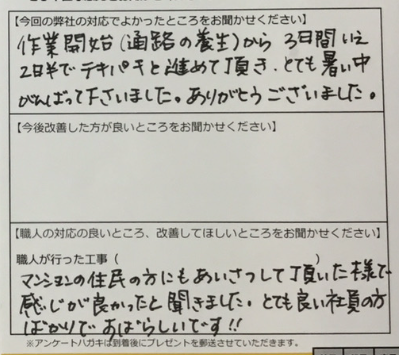 【今回の弊社の対応でよかったところをお聞かせください】
作業開始(通路の養生)から3日間いえ
2日半でテキパキと進めて頂き、とても暑い中
がんばって下さいました。ありがとうございました。
【今後改善した方が良いところをお聞かせください】
【職人の対応の良いところ、改善してほしいところをお聞かせください】
職人が行った工事（　　　　　　　　　　）
マンションの住民の方にもあいさつして頂いた様で
感じが良かったと聞きました。とても良い社員の方
ばかりですばらしいです!!
※アンケートハガキは到着後にプレゼントを郵送させていただきます。